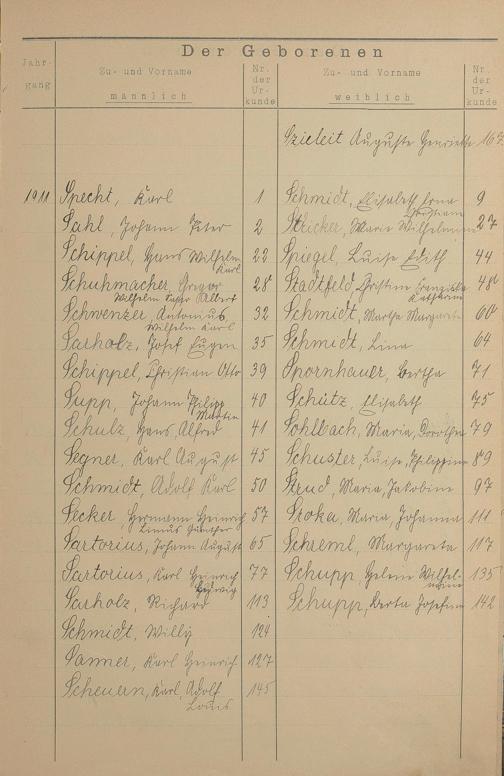 Der Geborenen
Jahr-
gang
Zu- und Vorname
männlich
Nr.
der
Ur-
kunde
Zu- und Vorname
weiblich
Nr.
der
Ur-
kunde
Szieleit Auguste Henriette 167
1911 Specht, Karl 1 Schmidt, Elisabeth Erna 9
Christiane
Sahl, Johann Peter 2 Stricker, Marie Wilhelmine 27
Schippel, Hans Wilhelm 22 Spiegel, Luise Edith 44
Karl
Schuhmacher, Gregor 28 Stadtfeld, Christine Franziska 48
Wilhelm Albert Katharina
Schwenzer, Antonius 32 Schmidt, Martha Margareta 60
Wilhelm Karl
Sarholz, Josef Eugen 35 Schmidt, Lina 64
Schippel, Christian Otto 39 Spornhauer, Bertha 71
Supp, Johann Philipp 40 Schütz, Elisabeth 75
Martin
Schulz, Hans Alfred 41 Sohlbach, Maria Dorothea 79
Segner, Karl August 45 Schuster, Luise Philippine 89
Schmidt, Adolf Karl 50 Strud, Maria Jakobine 97
Secker, Hermann Heinrich 57 Sroka, Maria Johanna 111
Linus Günther
Sartorius, Johann August 65 Schreml, Margareta 117
Sartorius, Karl Heinrich 77 Schupp, Helene Wilhel- 135
Ludwig mine
Sarholz, Richard 113 Schupp, Berta Josefine 142
Schmidt, Willy 124
Sanner, Karl Heinrich 127
Scheuern, Karl Adolf 145
Louis